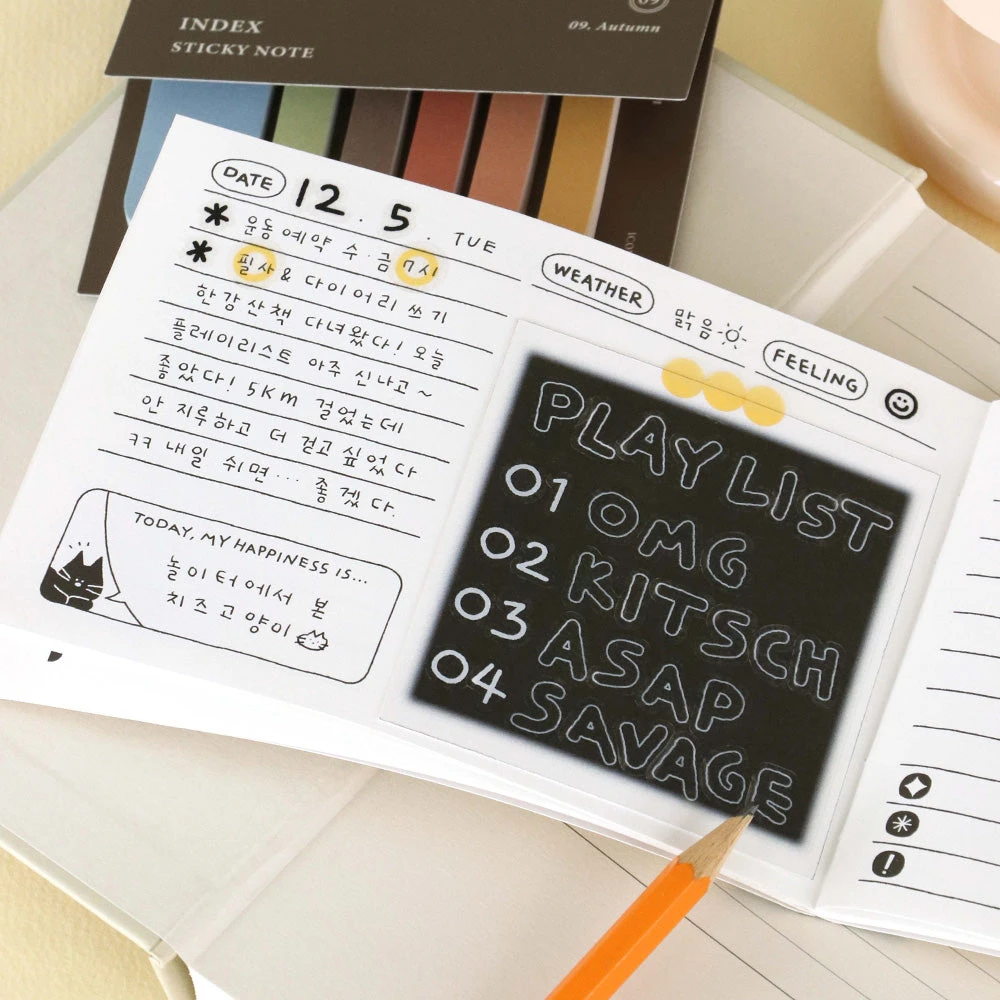 INDEX
STICKY NOTE
09
09. Autumn
DATE 12. 5. TUE
* 운동 예약 수·금 7시
* 필사 & 다이어리 쓰기
한강산책 다녀왔다! 오늘
플레이리스트 아주 신나고~
좋았다! 5km 걸었는데
안 지루하고 더 걷고 싶었다
ㅋㅋ 내일 쉬면... 좋겠다.
TODAY, MY HAPPINESS IS...
놀이터에서 본
치즈고양이
WEATHER 맑음
FEELING
PLAYLIST
01 OMG
02 KITSCH
03 ASAP
04 SAVAGE